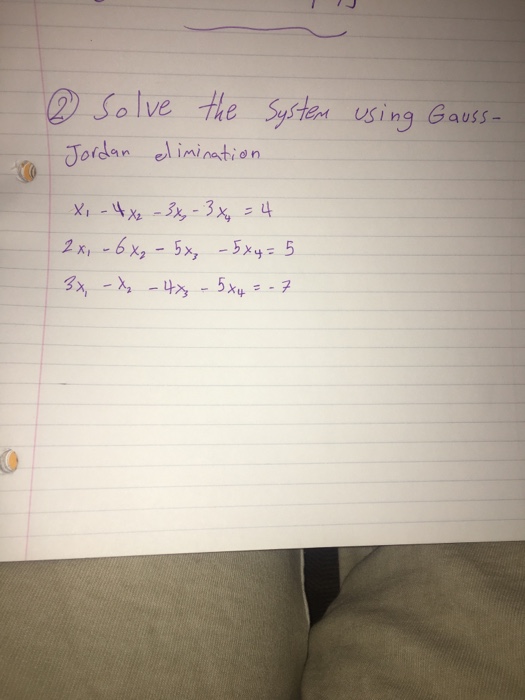 ② Solve the System using Gauss-
Jordan elimination
x₁ - 4x₂ - 3x₃ - 3x₄ = 4
2x₁ - 6x₂ - 5x₃ - 5x₄ = 5
3x₁ - x₂ - 4x₃ - 5x₄ = -7